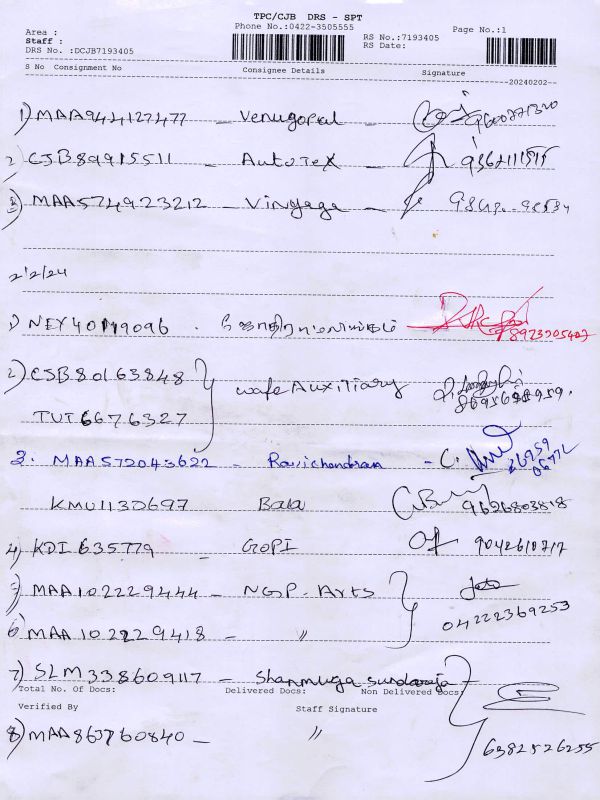 TPC/CJB DRS - SPT
Phone No.:0422-3505555
Area :
Staff :
DRS No. :DCJB7193405
RS No.:7193405
RS Date:
Page No.:1
S No Consignment No Consignee Details Signature
20240202
1) MAA944127477 - Venugopal -
2) CJB89915511 - AutoTex - 9362111515
3) MAA574923212 - Vinyaga -
2/2/24
1) NEY40119096 . 8973705402
2) CSB80163848 wafe Auxiliary
8695698959.
TUT6676327
3. MAA572043622 - Ravichandran -
KMU1130697 Bala 9626803818
4) KDI 635779 - GOPI 9042610717
5) MAA102229444 - NGP. Arts
04222369253
6) MAA102229418 - "
7) SLM338609117 - Shanmuga sundaraja
Total No. Of Docs: Delivered Docs: Non Delivered Docs:
Verified By Staff Signature
8) MAA863760840 - "
6382526255